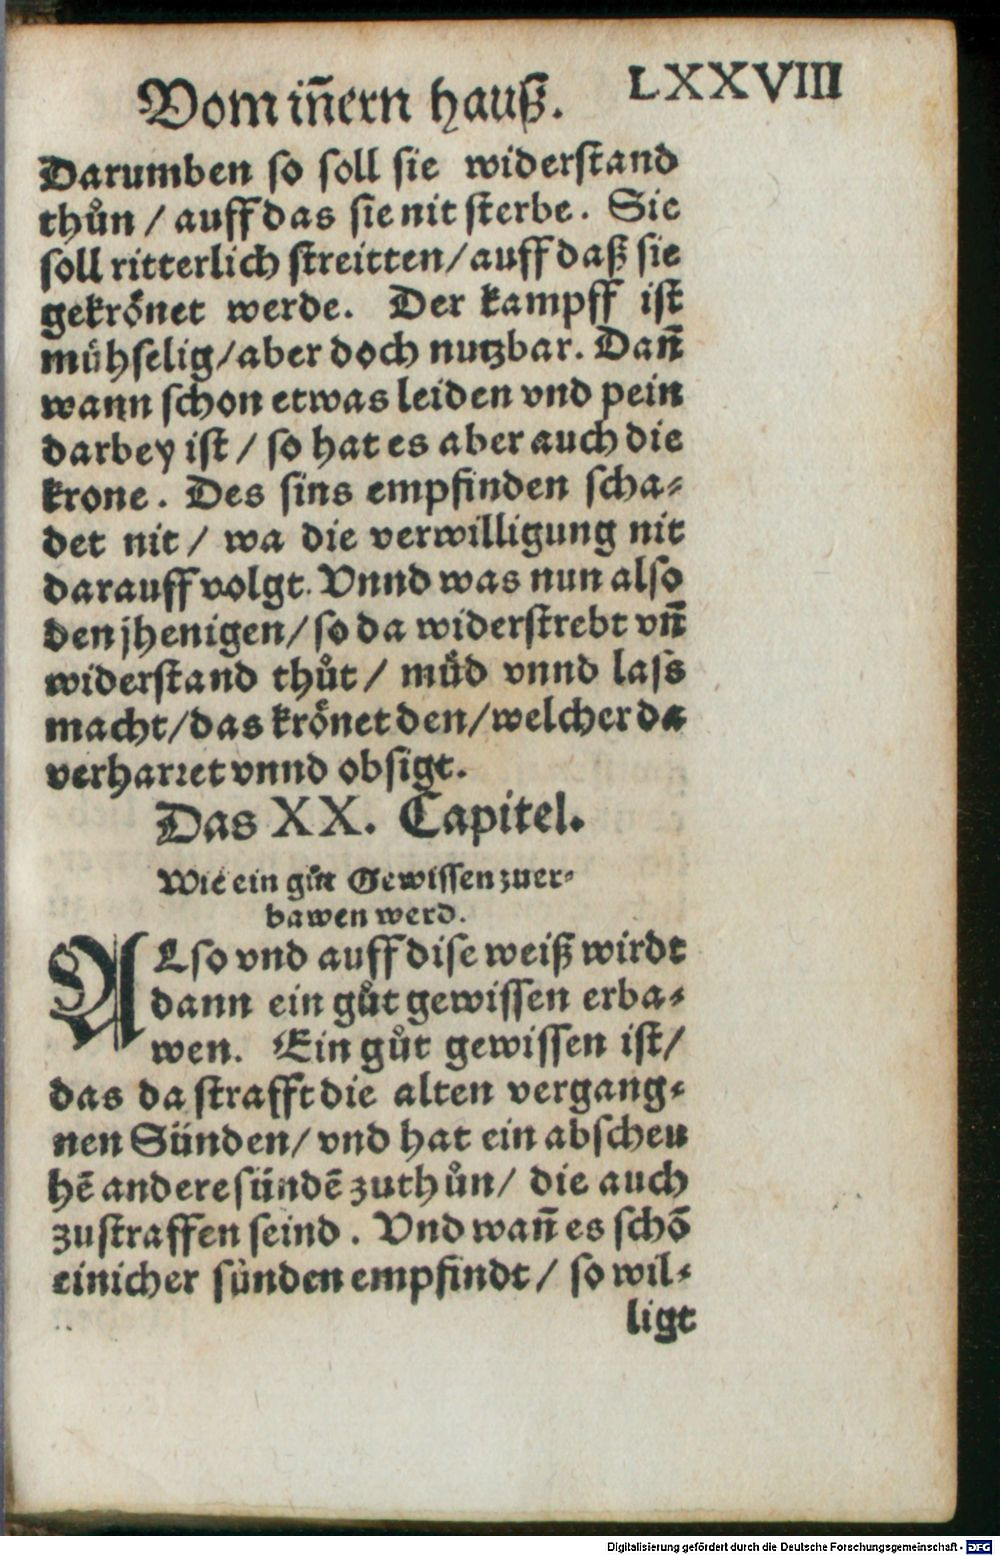 Vom iñern hauß. LXXVIII
Darumben so soll sie widerstand
thůn / auff das sie nit sterbe. Sie
soll ritterlich streitten/auff daß sie
gekrönet werde. Der kampff ist
mühselig/aber doch nutzbar. Dañ
wann schon etwas leiden vnd pein
darbey ist / so hat es aber auch die
krone. Des sins empfinden scha-
det nit / wa die verwilligung nit
darauff volgt. Vnnd was nun also
den jhenigen/so da widerstrebt vñ
widerstand thůt / müd vnnd lass
macht/das krönet den/welcher da
verharret vnnd obsigt.
Das XX. Capitel.
Wie ein gůt Gewissen zuer-
bawen werd.
ALso vnd auff dise weiß wirdt
dann ein gůt gewissen erba-
wen. Ein gůt gewissen ist/
das da strafft die alten vergang-
nen Sünden/vnd hat ein abscheu
hẽ andere sündẽ zuthůn/ die auch
zustraffen seind. Vnd wañ es schõ
einicher sünden empfindt / so wil-
ligt
Digitalisierung gefördert durch die Deutsche Forschungsgemeinschaft - DFG